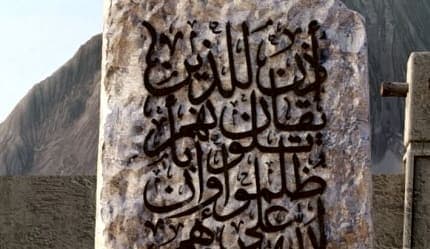 أذن للذين
يقاتلون بأنهم
ظلموا وإن
الله على